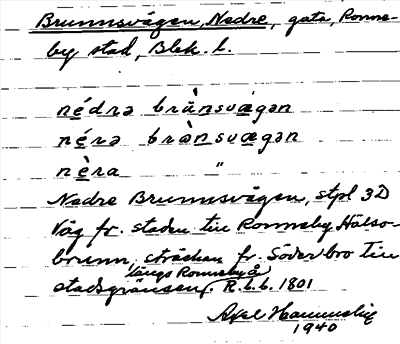 Brunnsvägen, Nedre, gata, Ronne-
by stad, Blek. l.
nédrə brùnsvægən
nérə brùnsvægən
nèra "
Nedre Brunnsvägen, stpl 3D
Väg fr. staden till Ronneby Hälso-
brunn, sträckan fr. Söderbro till
längs Ronneby å
stadsgränsen. R.b.b. 1801
Axel
1940